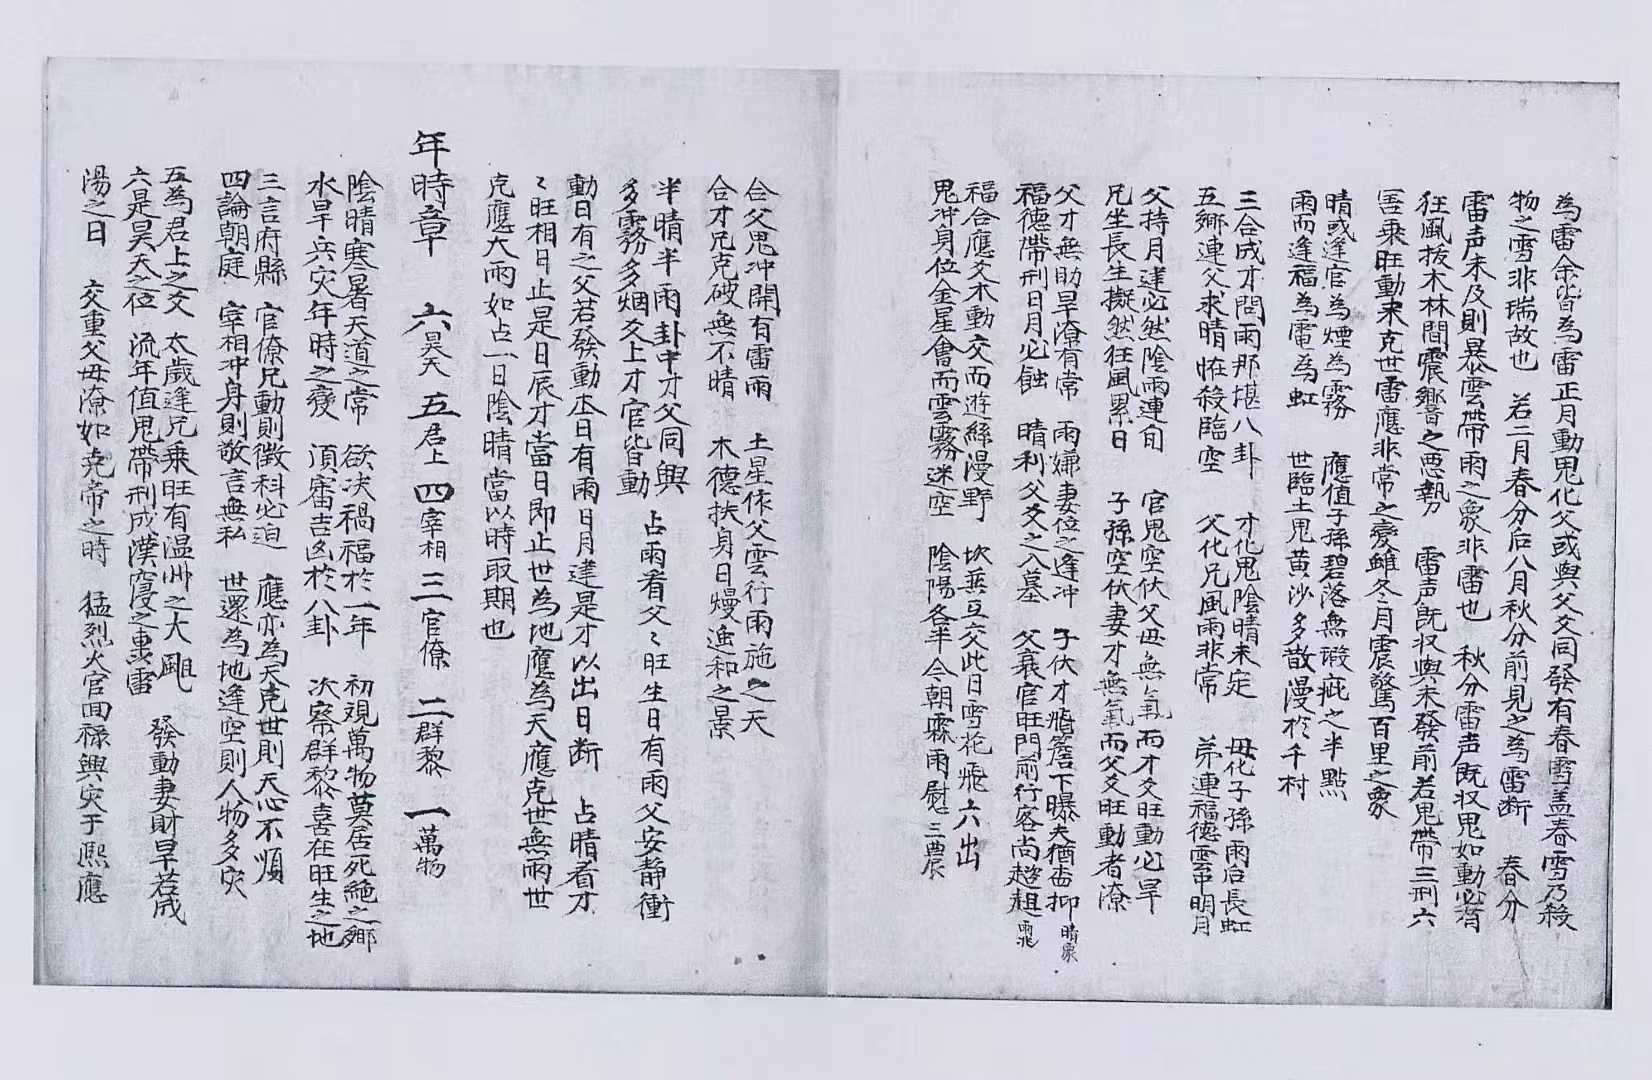 為雷余皆為雷正月動鬼化父或與父爻同發有春雪盖春雪乃殺
物之雪非瑞故也 若二月春分后八月秋分前見之為雷断 春分
雷声未及則暴雲帶雨之象非雷也 秋分雷声既收鬼如動必有
狂風拔木林間震響之悪勢 雷声既收與未發前若鬼帶三刑六
害乗旺動來克世雷應非常之變雖冬月震驚百里之象
晴或逢官為煙為霧 應值子孫碧落無瑕疵之半點
雨而逢福為電為虹 世臨土鬼黄沙多散漫於千村
三合成才問雨那堪八卦 才化鬼陰晴未定 母化子孫雨后長虹
五鄉連父求晴恠殺臨空 父化兄風雨非常 弟連福德雲中明月
父持月建必然陰雨連旬 官鬼空伏父毋無氣而才爻旺動必旱
兄坐長生擬然狂風累日 子孫空伏妻才無氣而父爻旺動者潦
父才無助旱潦有常 雨嫌妻位之逢冲 子伏才爊簷下曝夫猶盅抑 晴象
福德帶刑日月必蝕 晴利父爻之入墓 父衰官旺門前行客尚趑趄 雨兆
福合應爻木動交而遊絲漫野 坎無互交此日雪花飛六出
鬼冲身位金星會而雲霧迷空 陰陽各半今朝霖雨慰三農
合父鬼冲開有雷雨 土星依父雲行雨施之天
合才兄克破無不晴 木德扶身日熳逓和之景
半晴半雨卦中才父同興
多霧多烟爻上才官皆動 占雨看父〻旺生日有雨父安静衝
動日有之父若發動本日有雨日月建是才以出日断 占晴看才
〻旺相日止是日辰才當日即止世為地應為天應克世無雨世
克應大雨如占一日陰晴當以時取期也
年時章 六昊天 五君上 四宰相 三官僚 二群黎 一萬物
陰晴寒暑天道之常 欲决禍福於一年 初观萬物莫居死絶之鄉
水旱兵灾年時之變 湏審吉凶於八卦 次察群黎喜在旺生之地
三言府縣 官僚兄動則徴科必迫 應亦為天克世則天心不順
四論朝庭 宰相冲身則敢言無私 世還為地逢空則人物多灾
五為君上之爻 太歲逢兄乗旺有温州之大颶
六是昊天之位 流年值鬼帶刑成漢寝之轟雷 發動妻財旱若成
湯之日 交重父母潦如尭帝之時 猛烈火官回禄興灾于熙應